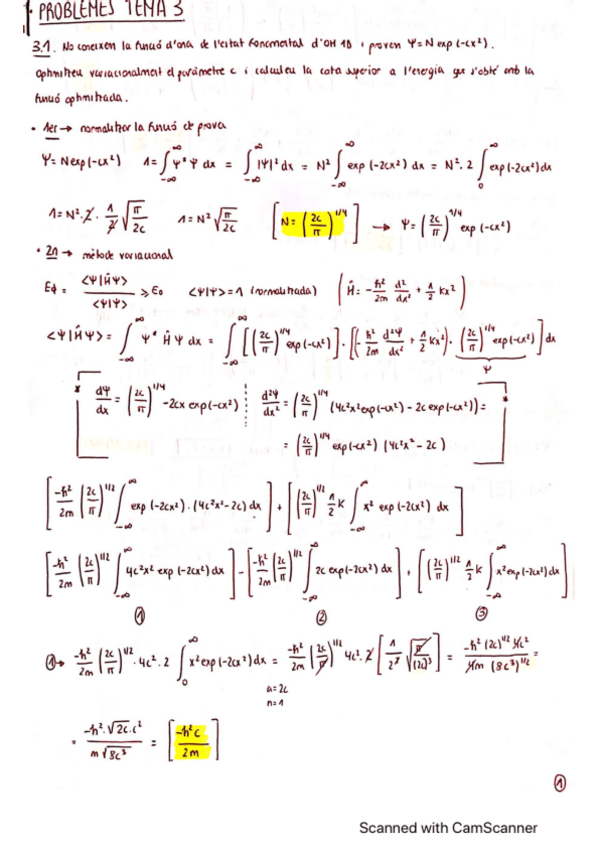 PROBLEMES TEMA 3
3.1. No coneixem la funció d'ona de l'estat fonamental d'OH 1D i provem Ψ=N exp(-cx²).
optimitzeu variacionalment el paràmetre c i calculeu la cota superior a l'energia que s'obté amb la
funció optimitzada.
• 1er → normalitzar la funció de prova
Ψ=N exp(-cx²) 1=∫_{-∞}^{∞} Ψ* Ψ dx = ∫_{-∞}^{∞} |Ψ|² dx = N² ∫_{-∞}^{∞} exp(-2cx²) dx = N²·2 ∫_{0}^{∞} exp(-2cx²)dx
1=N²·2·1/2 √(π/2c) 1=N² √(π/2c) [N=(2c/π)^{1/4}] → Ψ=(2c/π)^{1/4} exp(-cx²)
• 2n → mètode variacional
Eϕ = <Ψ|ĤΨ>/<Ψ|Ψ> ≥ E₀ <Ψ|Ψ>=1 (normalitzada) (Ĥ=-ħ²/2m d²/dx² + 1/2 kx²)
<Ψ|ĤΨ>=∫_{-∞}^{∞} Ψ* Ĥ Ψ dx = ∫_{-∞}^{∞} [[(2c/π)^{1/4} exp(-cx²)]·[(-ħ²/2m d²Ψ/dx² + 1/2 kx²)·(2c/π)^{1/4} exp(-cx²)]dx
Ψ
* dΨ/dx = (2c/π)^{1/4} -2cx exp(-cx²) d²Ψ/dx² = (2c/π)^{1/4} (4c²x² exp(-cx²) - 2c exp(-cx²))= *
= (2c/π)^{1/4} exp(-cx²) (4c²x² - 2c)
[-ħ²/2m (2c/π)^{1/2} ∫_{-∞}^{∞} exp(-2cx²)·(4c²x²-2c) dx] + [(2c/π)^{1/2} 1/2 k ∫_{-∞}^{∞} x² exp(-2cx²) dx]
[-ħ²/2m (2c/π)^{1/2} ∫_{-∞}^{∞} 4c²x² exp(-2cx²)dx] - [-ħ²/2m (2c/π)^{1/2} ∫_{-∞}^{∞} 2c exp(-2cx²)dx] + [(2c/π)^{1/2} 1/2 k ∫_{-∞}^{∞} x² exp(-2cx²)dx]
① ② ③
①→ -ħ²/2m (2c/π)^{1/2}·4c²·2 ∫_{0}^{∞} x² exp(-2cx²)dx = -ħ²/2m (2c/π)^{1/2} 4c²·2 [1/2³ √(π/(2c)³)] = -ħ² (2c)^{1/2} 4c²/4m (8c³)^{1/2} =
a=2c
n=1
= -ħ²·√2c·c²/m√8c³ = [-ħ²c/2m]
①
Scanned with CamScanner